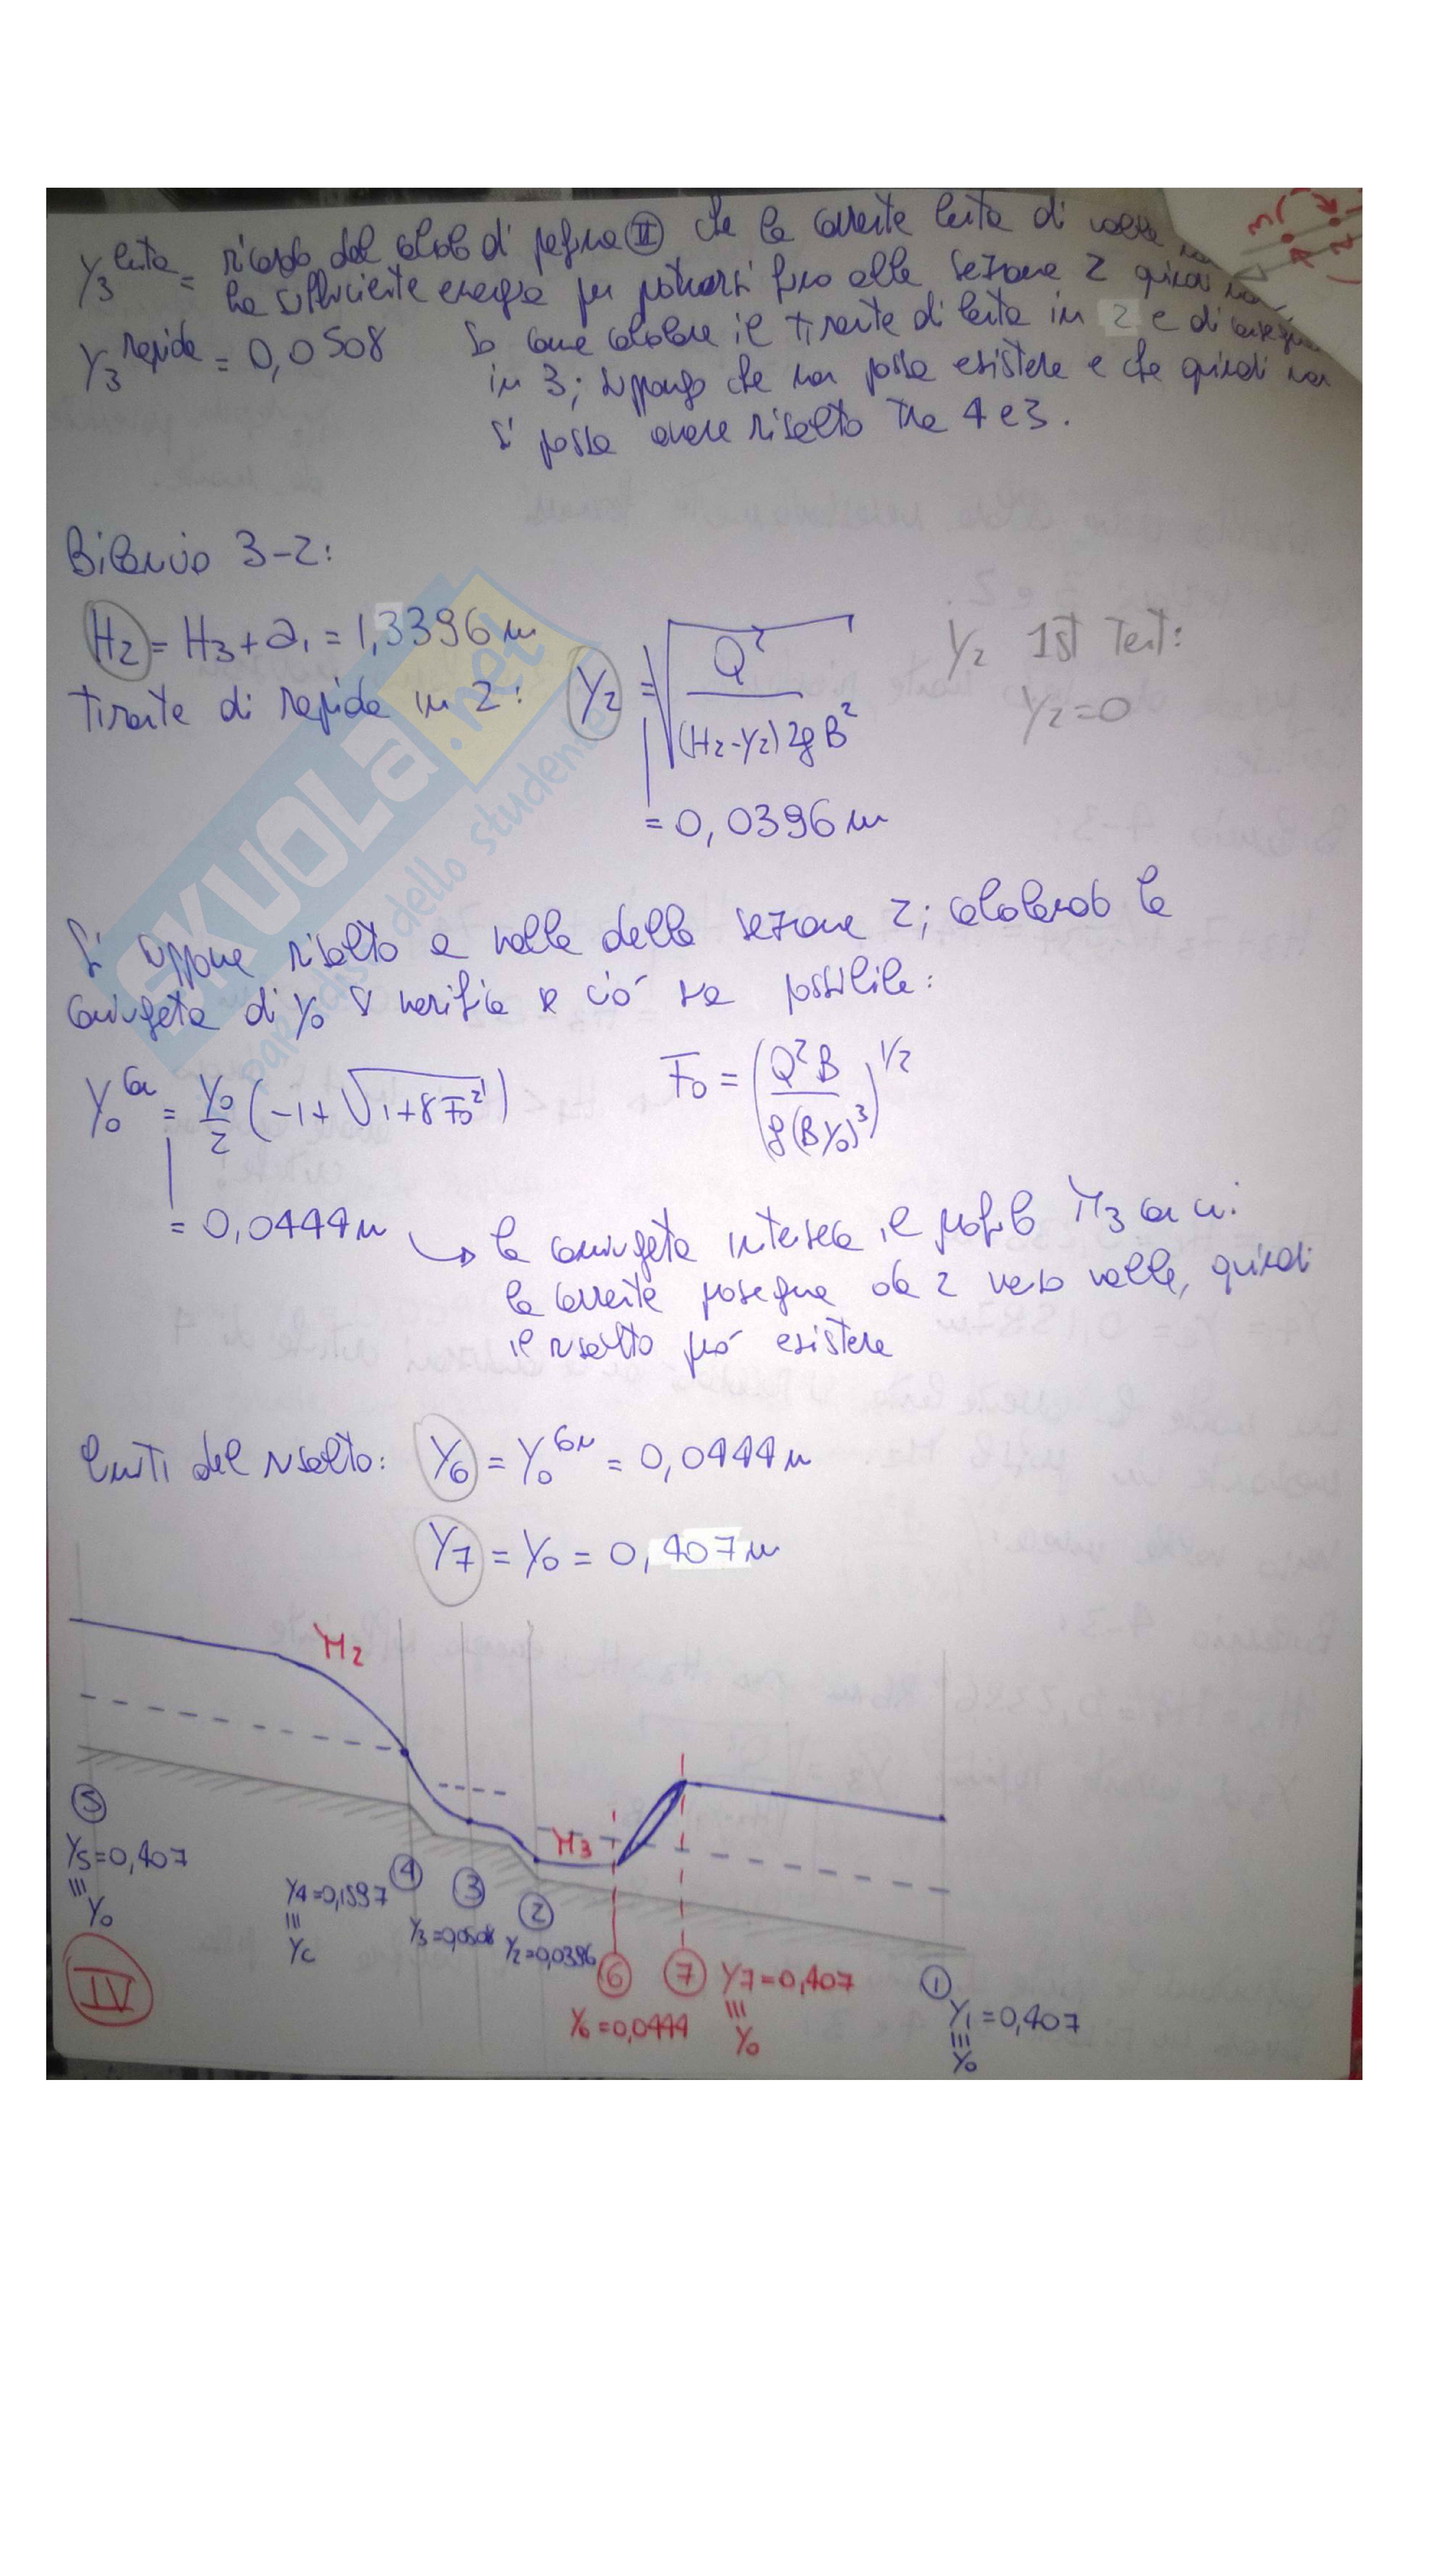 Y3 lenta = ricordo dal calcolo di pagina II che la corrente lenta di valle
ha sufficiente energia per portarsi fino alla sezione 2 quindi non
Y3 rapida = 0,0508 so come calcolare il tirante di lenta in 2 e di
in 3; suppongo che non possa esistere e che quindi non
si possa avere risalto tra 4 e 3.
Bilancio 3-2:
H2 = H3 + a1 = 1,3396 m
Y2 1st Tent:
Y2 = 0
tirante di rapida in 2: Y2 = √(Q² / ((H2-Y2) 2g B²))
= 0,0396 m
Si suppone risalto a valle della sezione 2; calcolando la
coniugata di Y0 si verifica se ciò sia possibile:
Y0 con = Y0/2 (-1+√(1+8F0²)) F0 = (Q²B / g(BY0)³)^1/2
= 0,0444 m → la coniugata interseca il profilo M3 con cui
la corrente prosegue da 2 verso valle, quindi
il risalto può esistere
limiti del risalto: Y6 = Y0 con = 0,0444 m
Y7 = Y0 = 0,407 m
M2
M3
5
Y5=0,407
≡
Y0
4
Y4=0,1597
≡
Yc
3
Y3=0,0508
2
Y2=0,0396
6
Y6=0,0444
7
Y7=0,407
≡
Y0
1
Y1=0,407
≡
Y0
IV
SKUOLA.net
paradiso dello studente